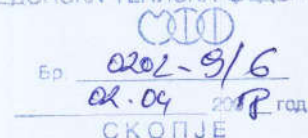 Бр. 0202-9/6
02.04 2008 год
СКОПЈЕ